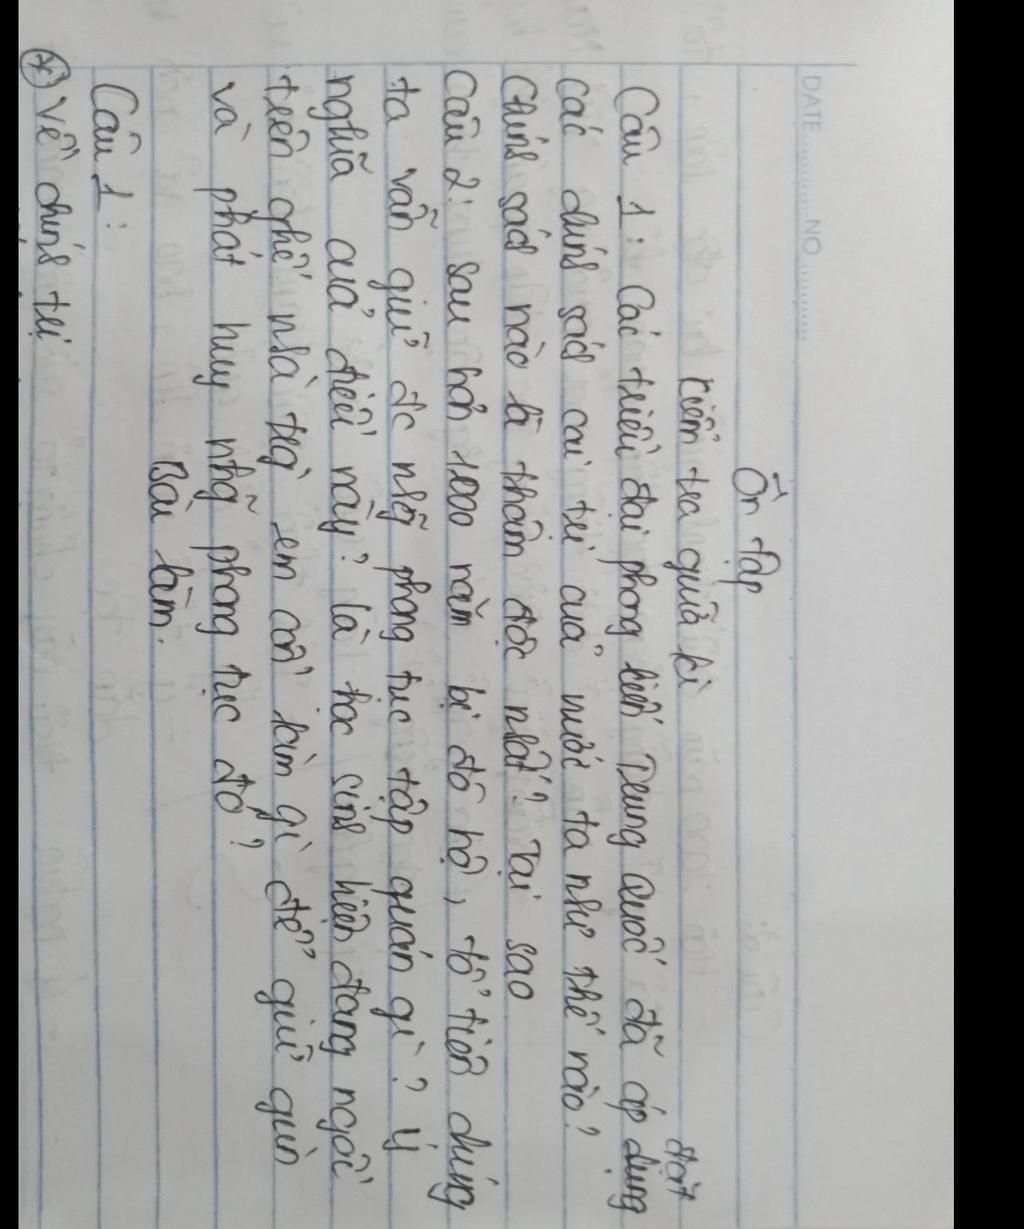 DATE............NO............
Ôn tập
kiểm tra giữa kì
Câu 1: Các triều đại phong kiến Trung Quốc đã áp dụng
đặt
các chính sách cai trị của nước ta như thế nào?
Chính sách nào là thâm độc nhất? Tại sao
Câu 2: sau hơn 1000 năm bị đô hộ, tổ tiên chúng
ta vẫn giữ đc những phong tục tập quán gì? Ý
nghĩa của điều này? là học sinh hiện đang ngồi
trên ghế nhà trg em cần làm gì để giữ gìn
và phát huy nhg~ phong tục đó?
Bài làm.
Câu 1:
(*) Về chính trị